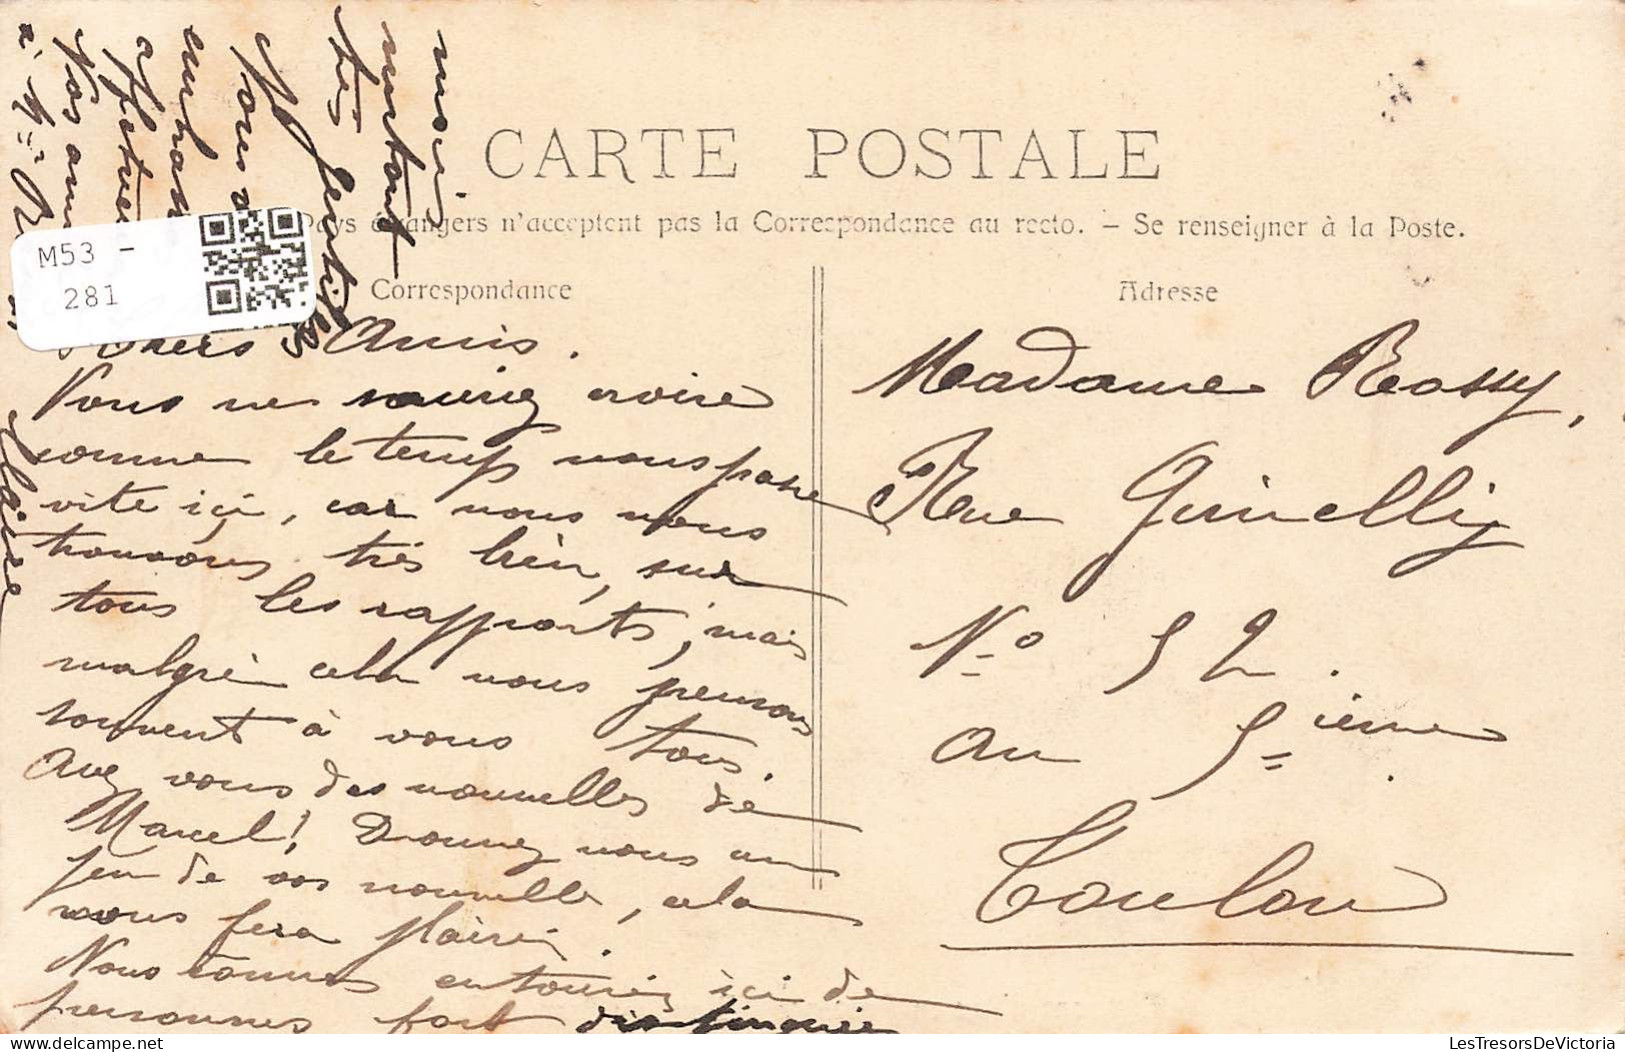 CARTE POSTALE
Pays étrangers n'acceptent pas la Correspondance au recto. - Se renseigner à la Poste.
Correspondance
Adresse
M53 -
281
Chers Amis.
Vous ne sauriez croire
comme le temps nous passe
vite ici, car nous nous
trouvons très bien, sur
tous les rapports, mais
malgrè cela nous pensons
souvent à vous tous.
Avez vous des nouvelles de
Marcel! Donnez nous un
peu de vos nouvelles, cela
nous fera plaisir.
Nous sommes entourés ici de
personnes fort distinguées
mais
surtout
très gentilles
vous
Nos
Claire
Madame Rossy,
Rue Gimelli
No 52.
au 5=ième.
Toulon
LesTresorsDeVictoria